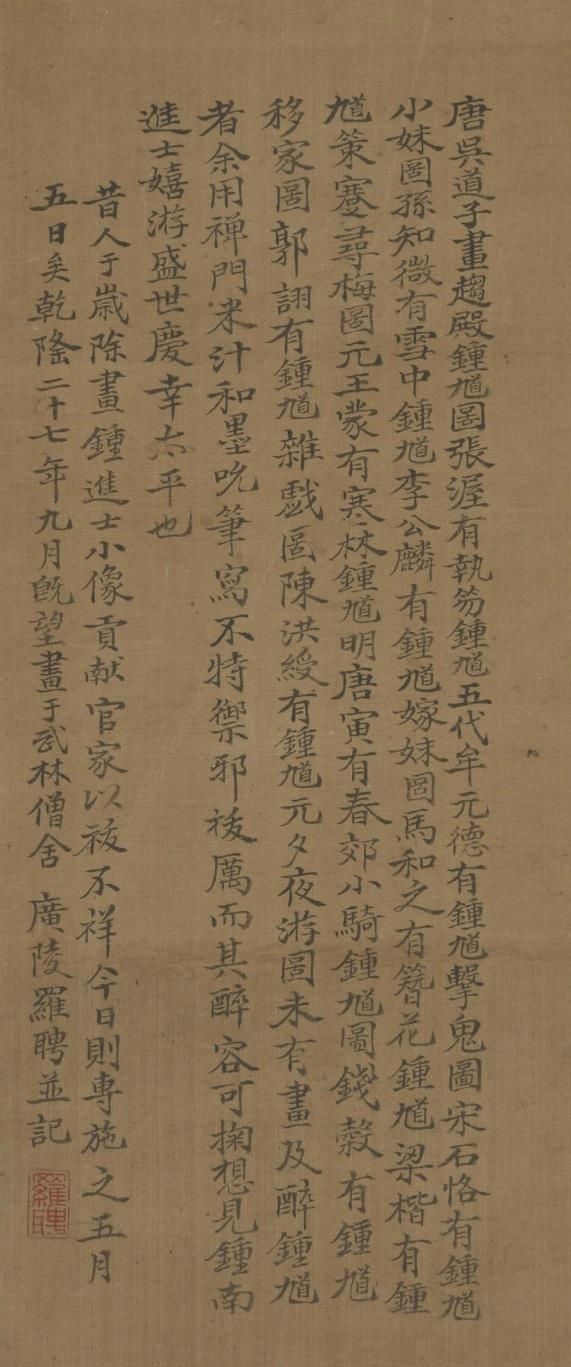 唐吳道子畫趨殿鍾馗圖張渥有執笏鍾馗五代牟元德有鍾馗擊鬼圖宋石恪有鍾馗
小妹圖孫知微有雪中鍾馗李公麟有鍾馗嫁妹圖馬和之有簪花鍾馗梁楷有鍾
馗策蹇尋梅圖元王蒙有寒林鍾馗明唐寅有春郊小騎鍾馗圖錢穀有鍾馗
移家圖郭詡有鍾馗雜戲圖陳洪綬有鍾馗元夕夜游圖未有畫及醉鍾馗
者余用禅門米汁和墨吮筆寫不特禦邪祓厲而其醉容可掬想見鍾南
進士嬉游盛世慶幸太平也
昔人于嵗除畫鍾進士小像貢献官家以祓不祥今日則專施之五月
五日矣乾隆二十七年九月旣望畫于武林僧舍 廣陵羅聘並記
羅聘